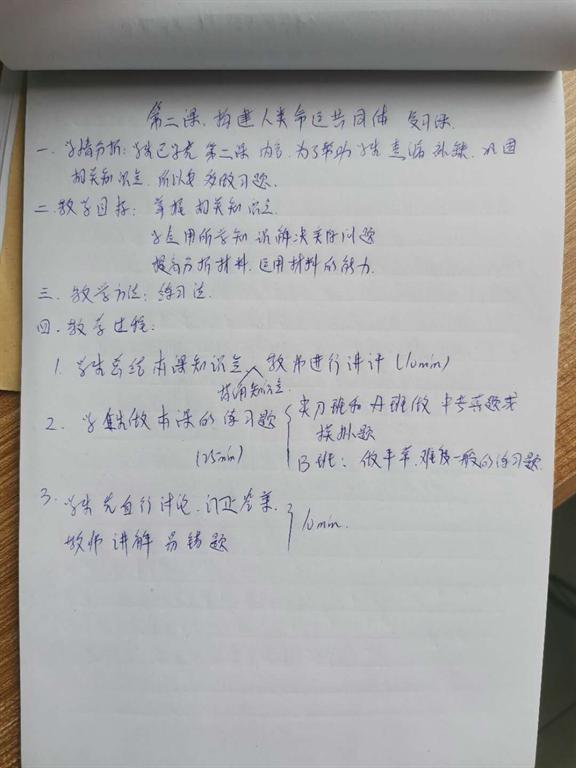 第二课.构建人类命运共同体 复习课.
一.学情分析:学生已学完第二课内容,为了帮助学生查漏补缺,巩固
相关知识点,所以要多做习题.
二.教学目标: 掌握相关知识点.
学会用所学知识解决实际问题
提高分析材料.运用材料的能力.
三.教学方法:练习法.
四.教学过程:
1.学生总结本课知识点 教师进行讲评(10min)
知识点.
2. 学生做本课的练习题 尖刀班和A班做中考真题或
模拟题
(25min) B班:做平常.难度一般的练习题.
3.学生先自行讨论.订正答案.
教师讲解易错题 10min.